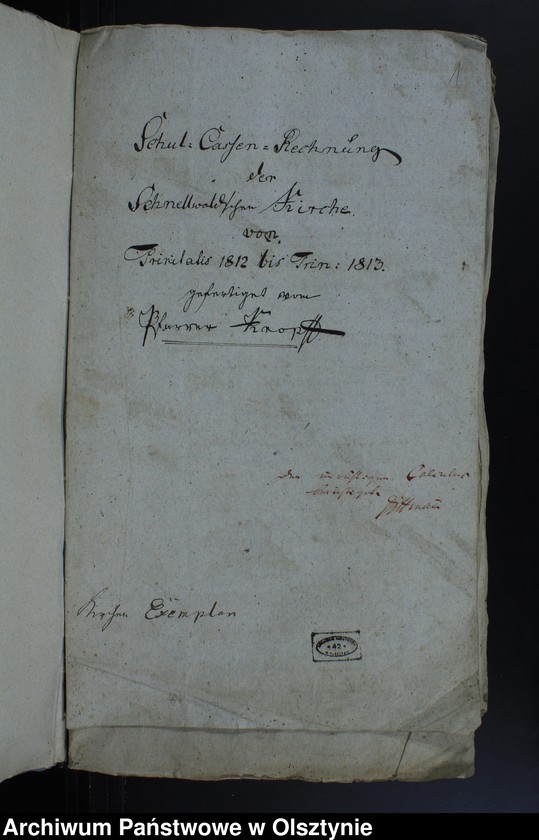 1
Schul-Cassen-Rechnung
der
Schnellwaldschen Kirche
von
Trinitatis 1812 bis Trin: 1813.
gefertiget vom
Pfarrer Kropff
den Calculus
Kirchen Exemplar
42
Archiwum Państwowe w Olsztynie